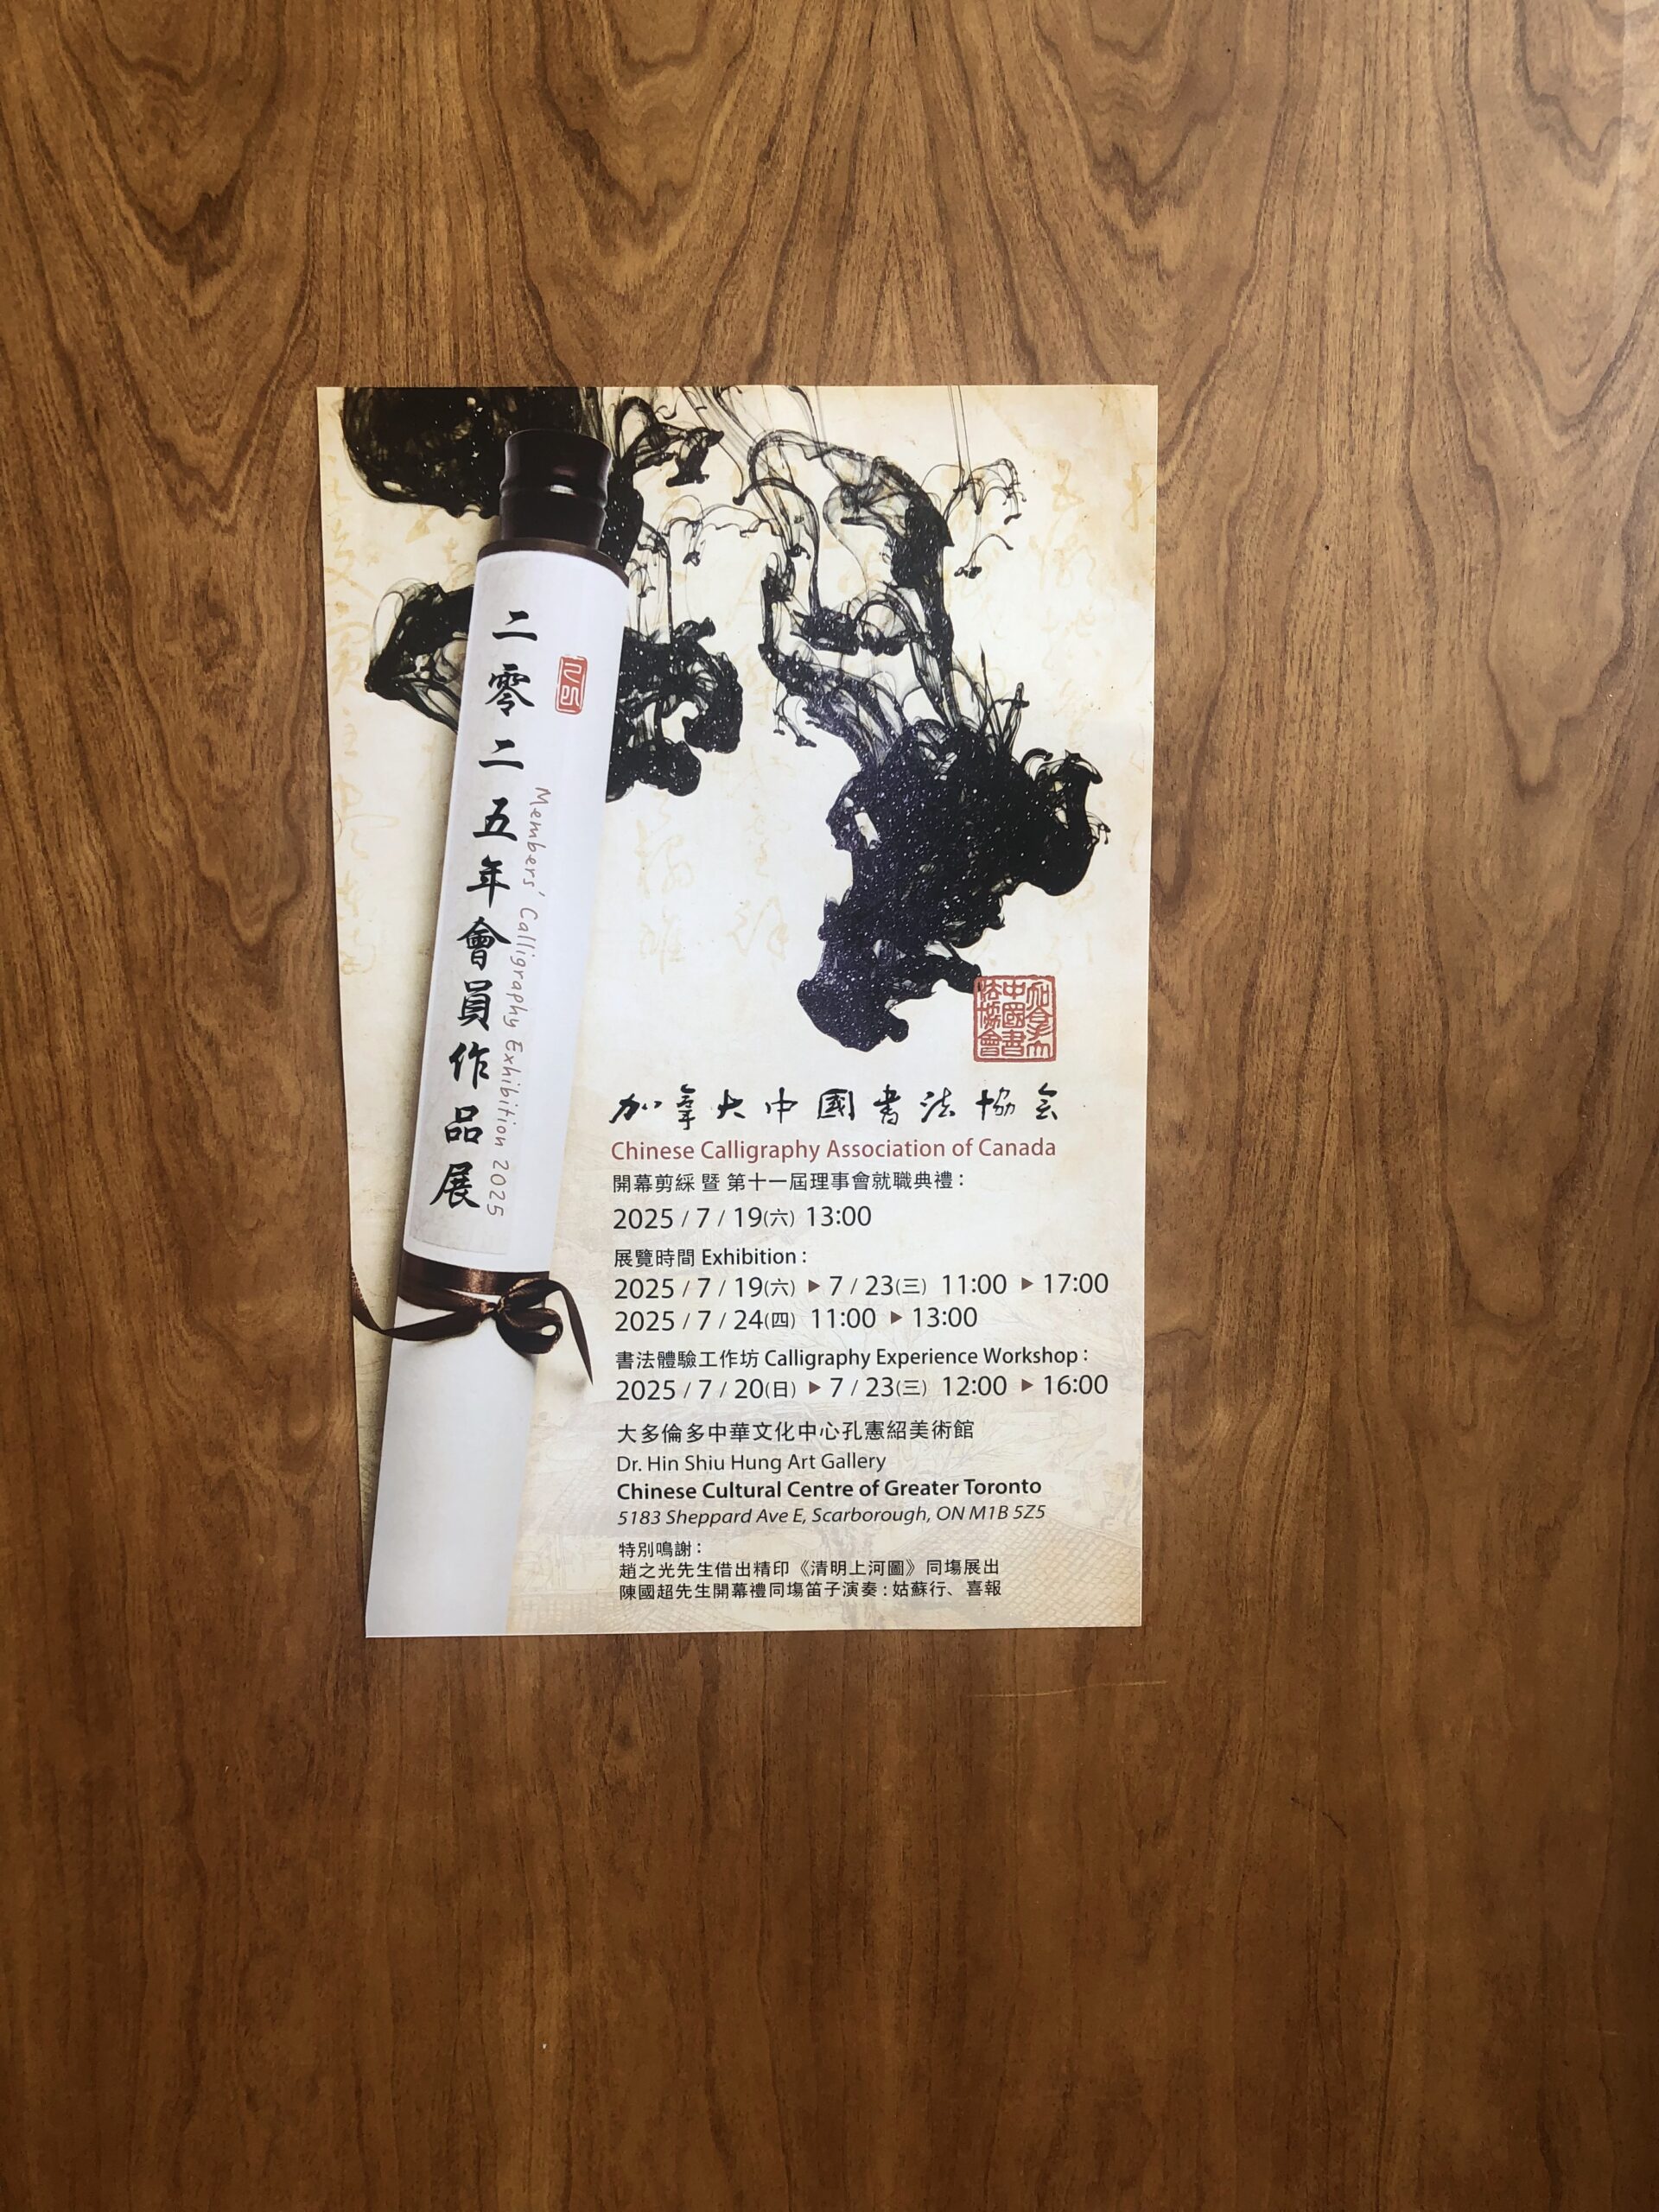 二零二五年會員作品展
Members' Calligraphy Exhibition 2025
加拿大中國書法協會
加拿大中國書法協会
Chinese Calligraphy Association of Canada
開幕剪綵 暨 第十一屆理事會就職典禮：
2025 / 7 / 19(六) 13:00
展覽時間 Exhibition：
2025 / 7 / 19(六) ▶ 7 / 23(三) 11:00 ▶ 17:00
2025 / 7 / 24(四) 11:00 ▶ 13:00
書法體驗工作坊 Calligraphy Experience Workshop：
2025 / 7 / 20(日) ▶ 7 / 23(三) 12:00 ▶ 16:00
大多倫多中華文化中心孔憲紹美術館
Dr. Hin Shiu Hung Art Gallery
Chinese Cultural Centre of Greater Toronto
5183 Sheppard Ave E, Scarborough, ON M1B 5Z5
特別鳴謝：
趙之光先生借出精印《清明上河圖》同塲展出
陳國超先生開幕禮同塲笛子演奏：姑蘇行、喜報